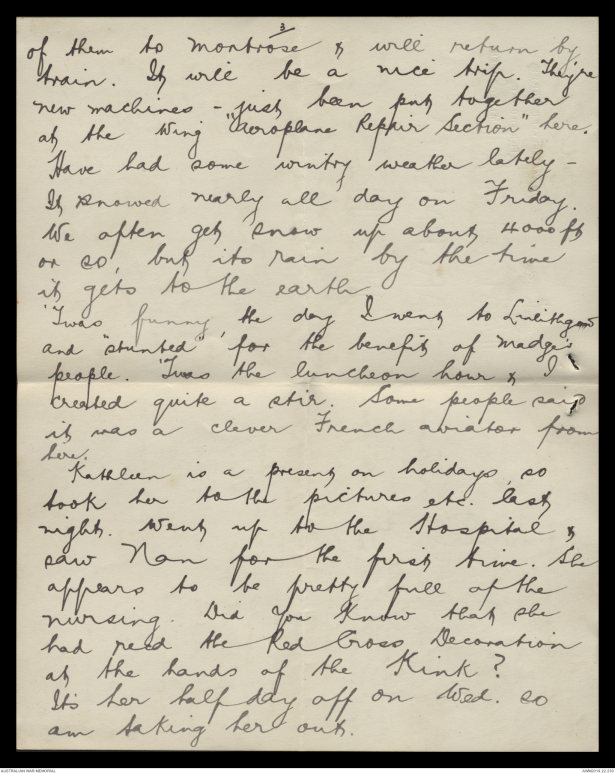 3
of them to Montrose & will return by
train. It will be a nice trip. They're
new machines - just been put together
at the Wing "Aeroplane Repair Section" here.
Have had some wintry weather lately -
It snowed nearly all day on Friday.
We often get snow up about 4000 ft
or so, but its rain by the time
it gets to the earth
'Twas funny, the day I went to Linlithgow
and "stunted" for the benefit of Madge's
people. 'Twas the luncheon hour & I
created quite a stir. Some people said
it was a clever French aviator from
here.
Kathleen is a present on holidays, so
took her to the pictures etc. last
night. Went up to the Hospital &
saw Nan for the first time. She
appears to be pretty full of the
nursing. Did you know that she
had recd the Red Cross Decoration
at the hands of the Kink?
It's her half day off on Wed. so
am taking her out.
AUSTRALIAN WAR MEMORIAL